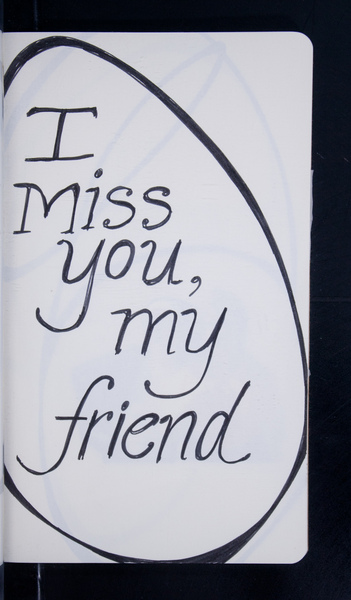 I
Miss
you,
my
friend